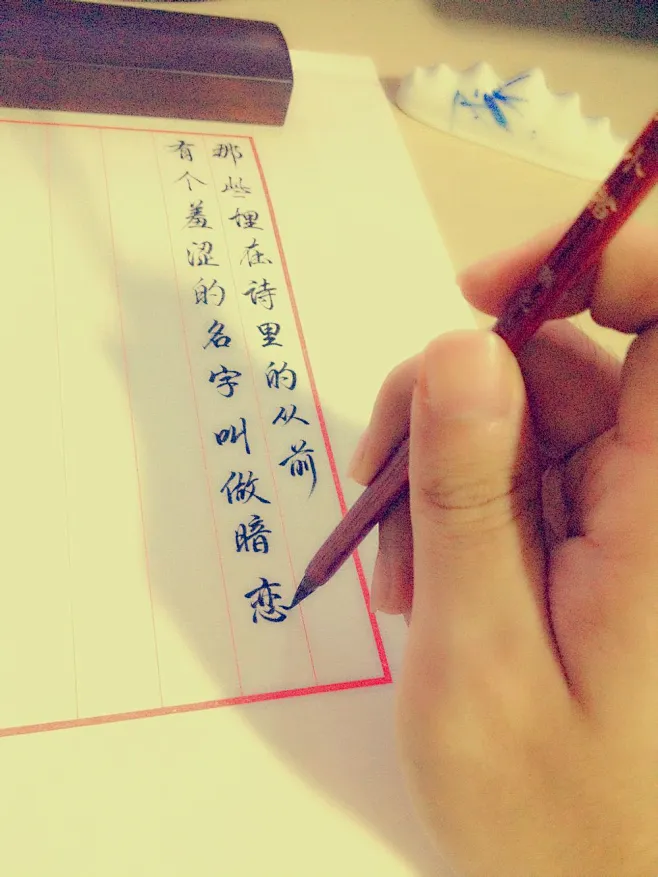 那些埋在诗里的从前
有个羞涩的名字叫做暗恋